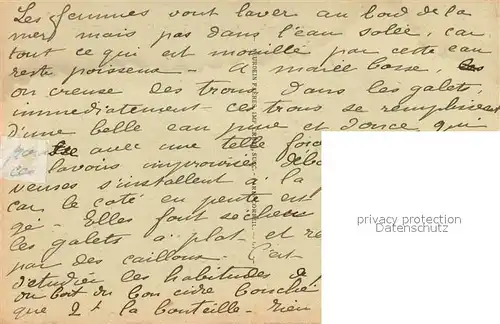 Les femmes vont laver au bord de la
mer mais pas dans l'eau salée, car
tout ce qui est mouillé par cette eau
reste poisseux - A marée basse,
on creuse des trous dans les galets,
immédiatement - ces trous se remplissent
d'une belle eau pure et douce qui
avec une telle force
ces lavoirs improvisés
veuses s'installent à la
car le coté en pente est
gé - Elles font sécher
les galets à plat et
par des cailloux. C'est
d'étudier les habitudes
on boit du bon cidre bouché
que 2 f la bouteille - rien
privacy protection
Datenschutz